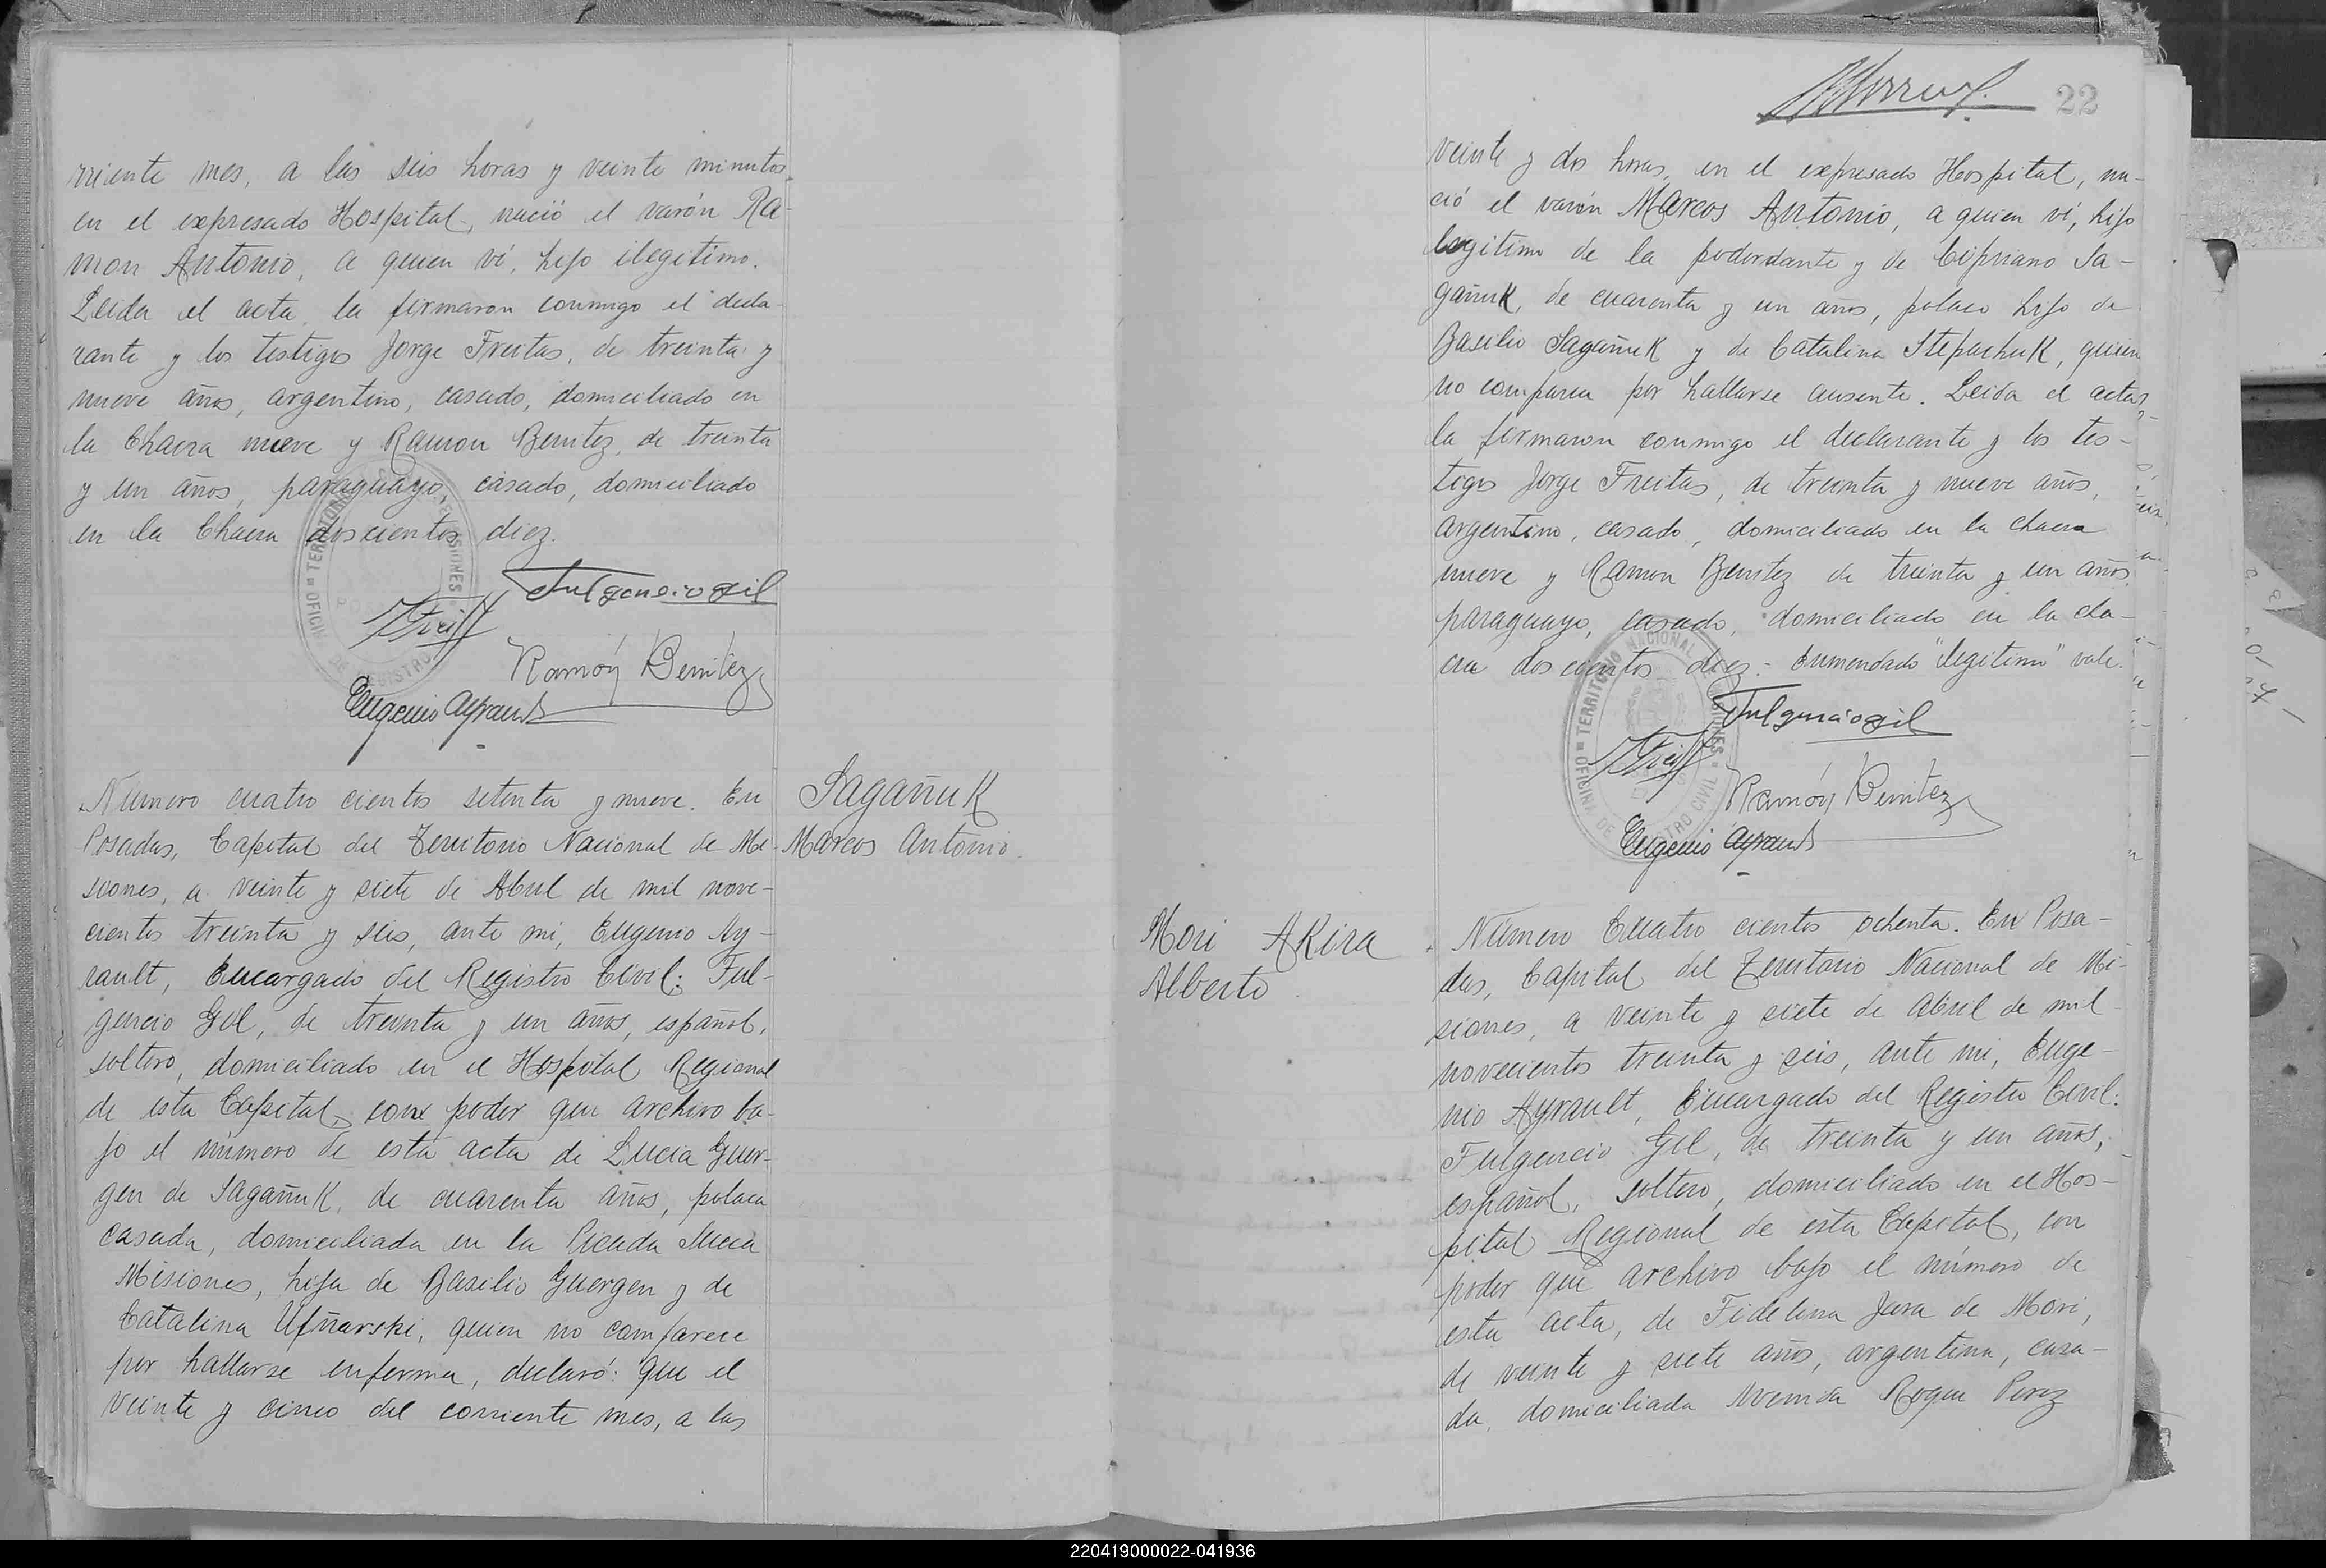 rriente mes, a las seis horas y veinte minutos,
en el expresado Hospital, nació el varón Ra-
mon Antonio, a quien ví, hijo ilegítimo.
Leida el acta, la firmaron conmigo el decla-
rante y los testigos Jorge Freitas, de treinta y
nueve años, argentino, casado, domiciliado en
la Chacra nueve y Ramon Benitez, de treinta
y un años, paraguayo, casado, domiciliado
en la Chacra doscientos diez.
Fulgencio Gil
Ramón Benítez
Eugenio Ayrault
Número cuatro cientos setenta y nueve. En
Posadas, Capital del Territorio Nacional de Mi-
siones, a veinte y siete de Abril de mil nove-
cientos treinta y seis, ante mi, Eugenio Ay-
rault, Encargado del Registro Civil: Ful-
gencio Gil, de treinta y un años, español,
soltero, domiciliado en el Hospital Regional
de esta Capital, con poder que archivo ba-
jo el número de esta acta de Lucia Guer-
gen de Sagañuk, de cuarenta años, polaca
casada, domiciliada en la Picada Sueca
Misiones, hija de Basilio Guergen y de
Catalina Ufñarski, quien no comparece
por hallarse enferma, declaró: que el
veinte y cinco del corriente mes, a las
Sagañuk
Marcos Antonio
22
veinte y dos horas, en el expresado Hospital, na-
ció el varón Marcos Antonio, a quien ví, hijo
legítimo de la poderdante y de Cipriano Sa-
gañuk, de cuarenta y un años, polaco hijo de
Basilio Sagañuk y de Catalina Stepachuk, quien
no comparece por hallarse ausente. Leida el acta,
la firmaron conmigo el declarante y los tes-
tigos Jorge Freitas, de treinta y nueve años,
argentino, casado, domiciliado en la chacra
nueve y Ramon Benitez de treinta y un años
paraguayo, casado, domiciliado en la cha-
cra dos cientos diez - Enmendado "legítimo" vale.
Fulgencio Gil
Ramón Benítez
Eugenio Ayrault
Mori AKira
Alberto
Número Cuatro cientos ochenta. En Posa-
das, Capital del Territorio Nacional de Mi-
siones, a veinte y siete de Abril de mil
novecientos treinta y seis, ante mi, Euge-
nio Ayrault, Encargado del Registro Civil:
Fulgencio Gil, de treinta y un años,
español, soltero, domiciliado en el Hos-
pital Regional de esta Capital, con
poder que archivo bajo el número de
esta acta, de Fidelina Jara de Mori,
de veinte y siete años, argentina, casa-
da, domiciliada Avenida Roque Perez
220419000022-041936